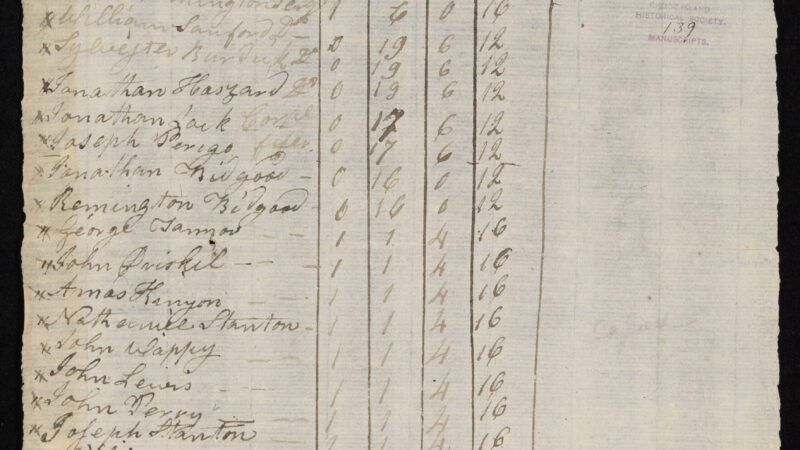 William Sanford Do 1 6 0 16
RHODE ISLAND
HISTORICAL SOCIETY.
139
MANUSCRIPTS.
Sylvester Burdick Do 0 19 6 12
0 19 6 12
Jonathan Haszard Do 0 19 6 12
Jonathan Jack Corpl 0 17 6 12
Joseph Perigo fifer 0 17 6 12
Jonathan Bidgood 0 16 0 12
Remington Bidgood 0 16 0 12
George Tannor 1 1 4 16
John Driskil 1 1 4 16
Amos Kinyon 1 1 4 16
Nathaniel Stanton 1 1 4 16
John Wappy 1 1 4 16
John Lewis 1 1 4 16
John Perry 1 1 4 16
Joseph Stanton 1 1 4 16